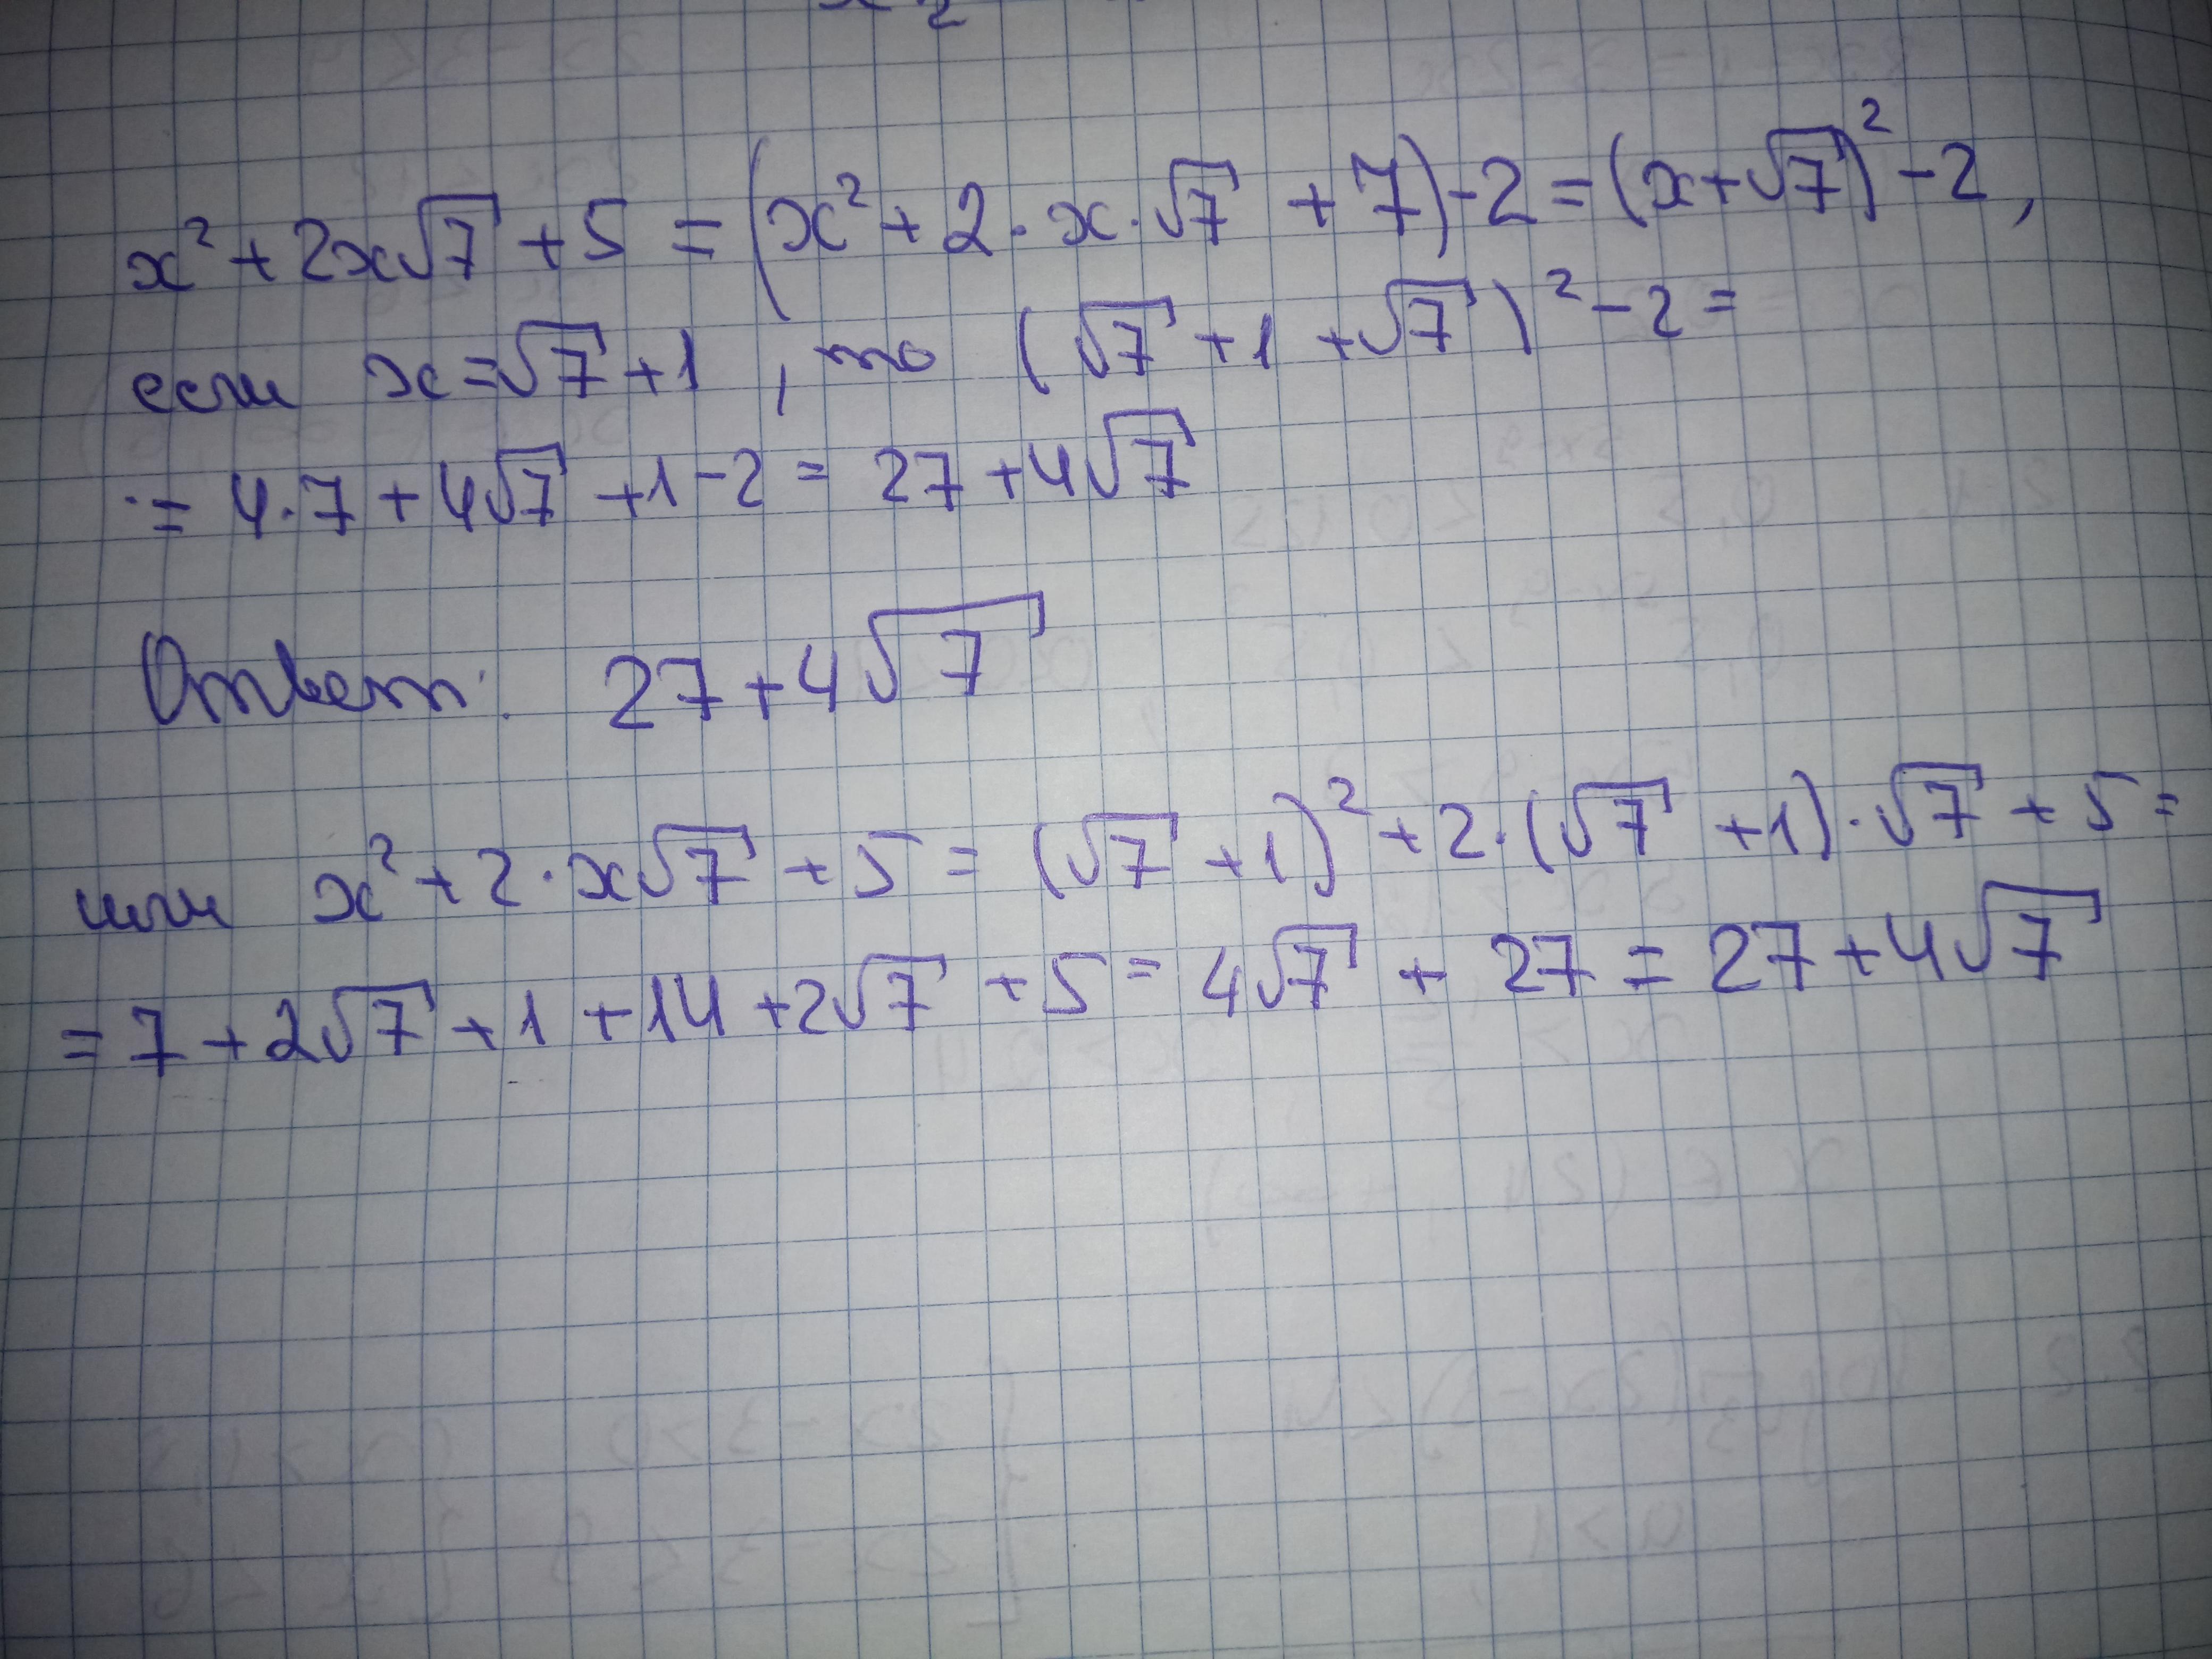 x² + 2x√7 + 5 = (x² + 2·x·√7 + 7) - 2 = (x+√7)² - 2,
если x = √7 + 1, то (√7 + 1 + √7)² - 2 =
= 4·7 + 4√7 + 1 - 2 = 27 + 4√7
Ответ: 27 + 4√7
или x² + 2·x√7 + 5 = (√7 + 1)² + 2·(√7 + 1)·√7 + 5 =
= 7 + 2√7 + 1 + 14 + 2√7 + 5 = 4√7 + 27 = 27 + 4√7